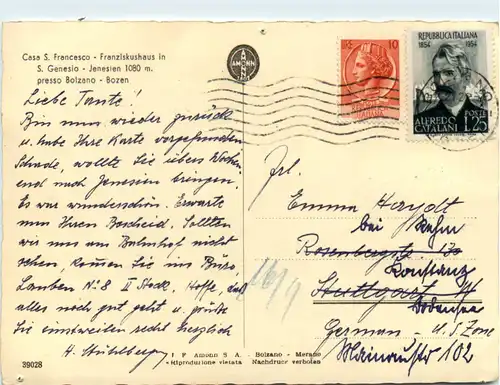 Casa S. Francesco - Franziskushaus in
S. Genesio - Jenesien 1080 m.
presso Bolzano - Bozen
AMONN
Liebe Tante!
Bin nun wieder zurück
u. habe Ihre Karte vorgefunden
Schade, wollte Sie übers Wochen
end nach Jenesien bringen.
Es war wunderschön. Erwarte
nun Ihren Bescheid. Sollten
wir uns am Bahnhof nicht
sehen, kommen Sie ins Büro,
Lauben No 8 II Stock. Hoffe, daß
alles noch gut geht u. grüße
Sie einstweilen recht herzlich
39028
I F Amonn S A. - Bolzano - Merano
Riproduzione vietata Nachdruck verboten
10
ITALIANA
REPUBBLICA ITALIANA
1854 1954
ALFREDO CATALANI
POSTE
L.25
Frl.
Emma Haydt
bei
Rosenbergstr.
Konstanz
Stuttgart W
Bodensee
German - U.S. Zone
Mainaustr 102